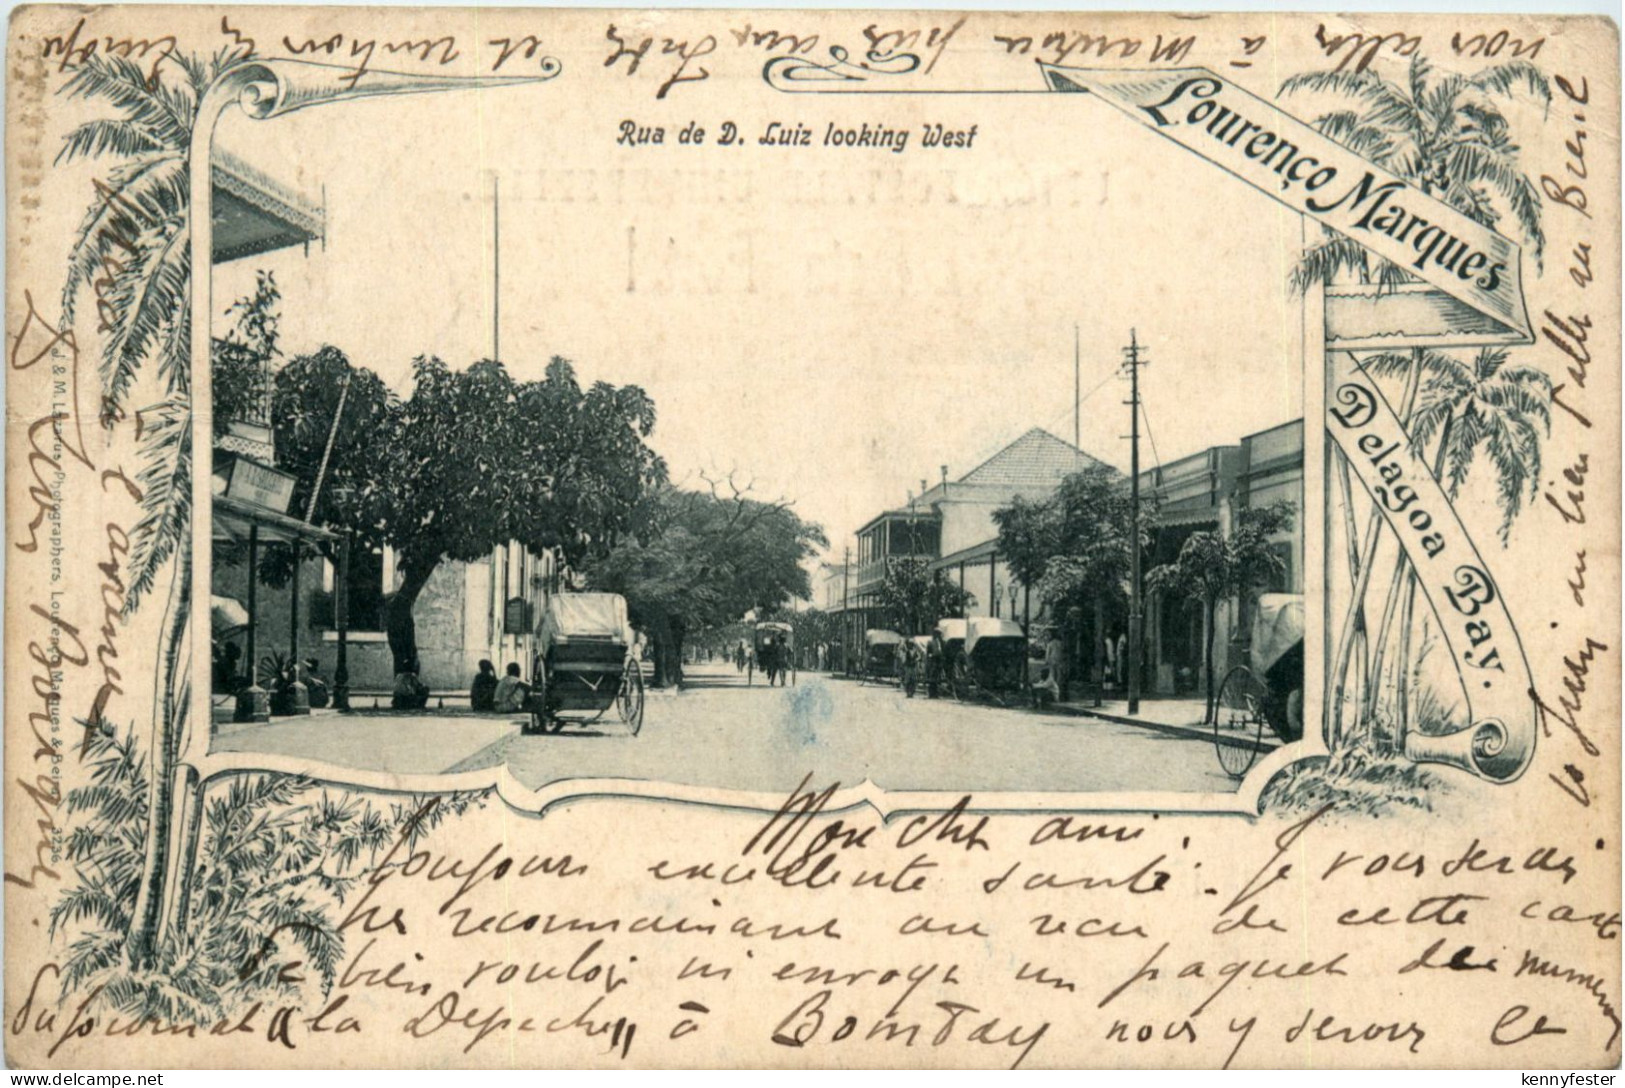 Rua de D. Luiz looking West
Lourenço Marques
Delagoa Bay.
J. & M. Lazarus, Photographers, Lourenço Marques & Beira
3236
Mon cher ami.
Toujours excellente santé. Je vous serais
très reconnaissant au reçu de cette carte
de bien vouloir m'envoyer un paquet de numéros
du journal "la Depeche" à Bombay nous y serons le
au Brésil
nous allons à
puis aux Indes et
en Europe
Viva l'
kennyfester